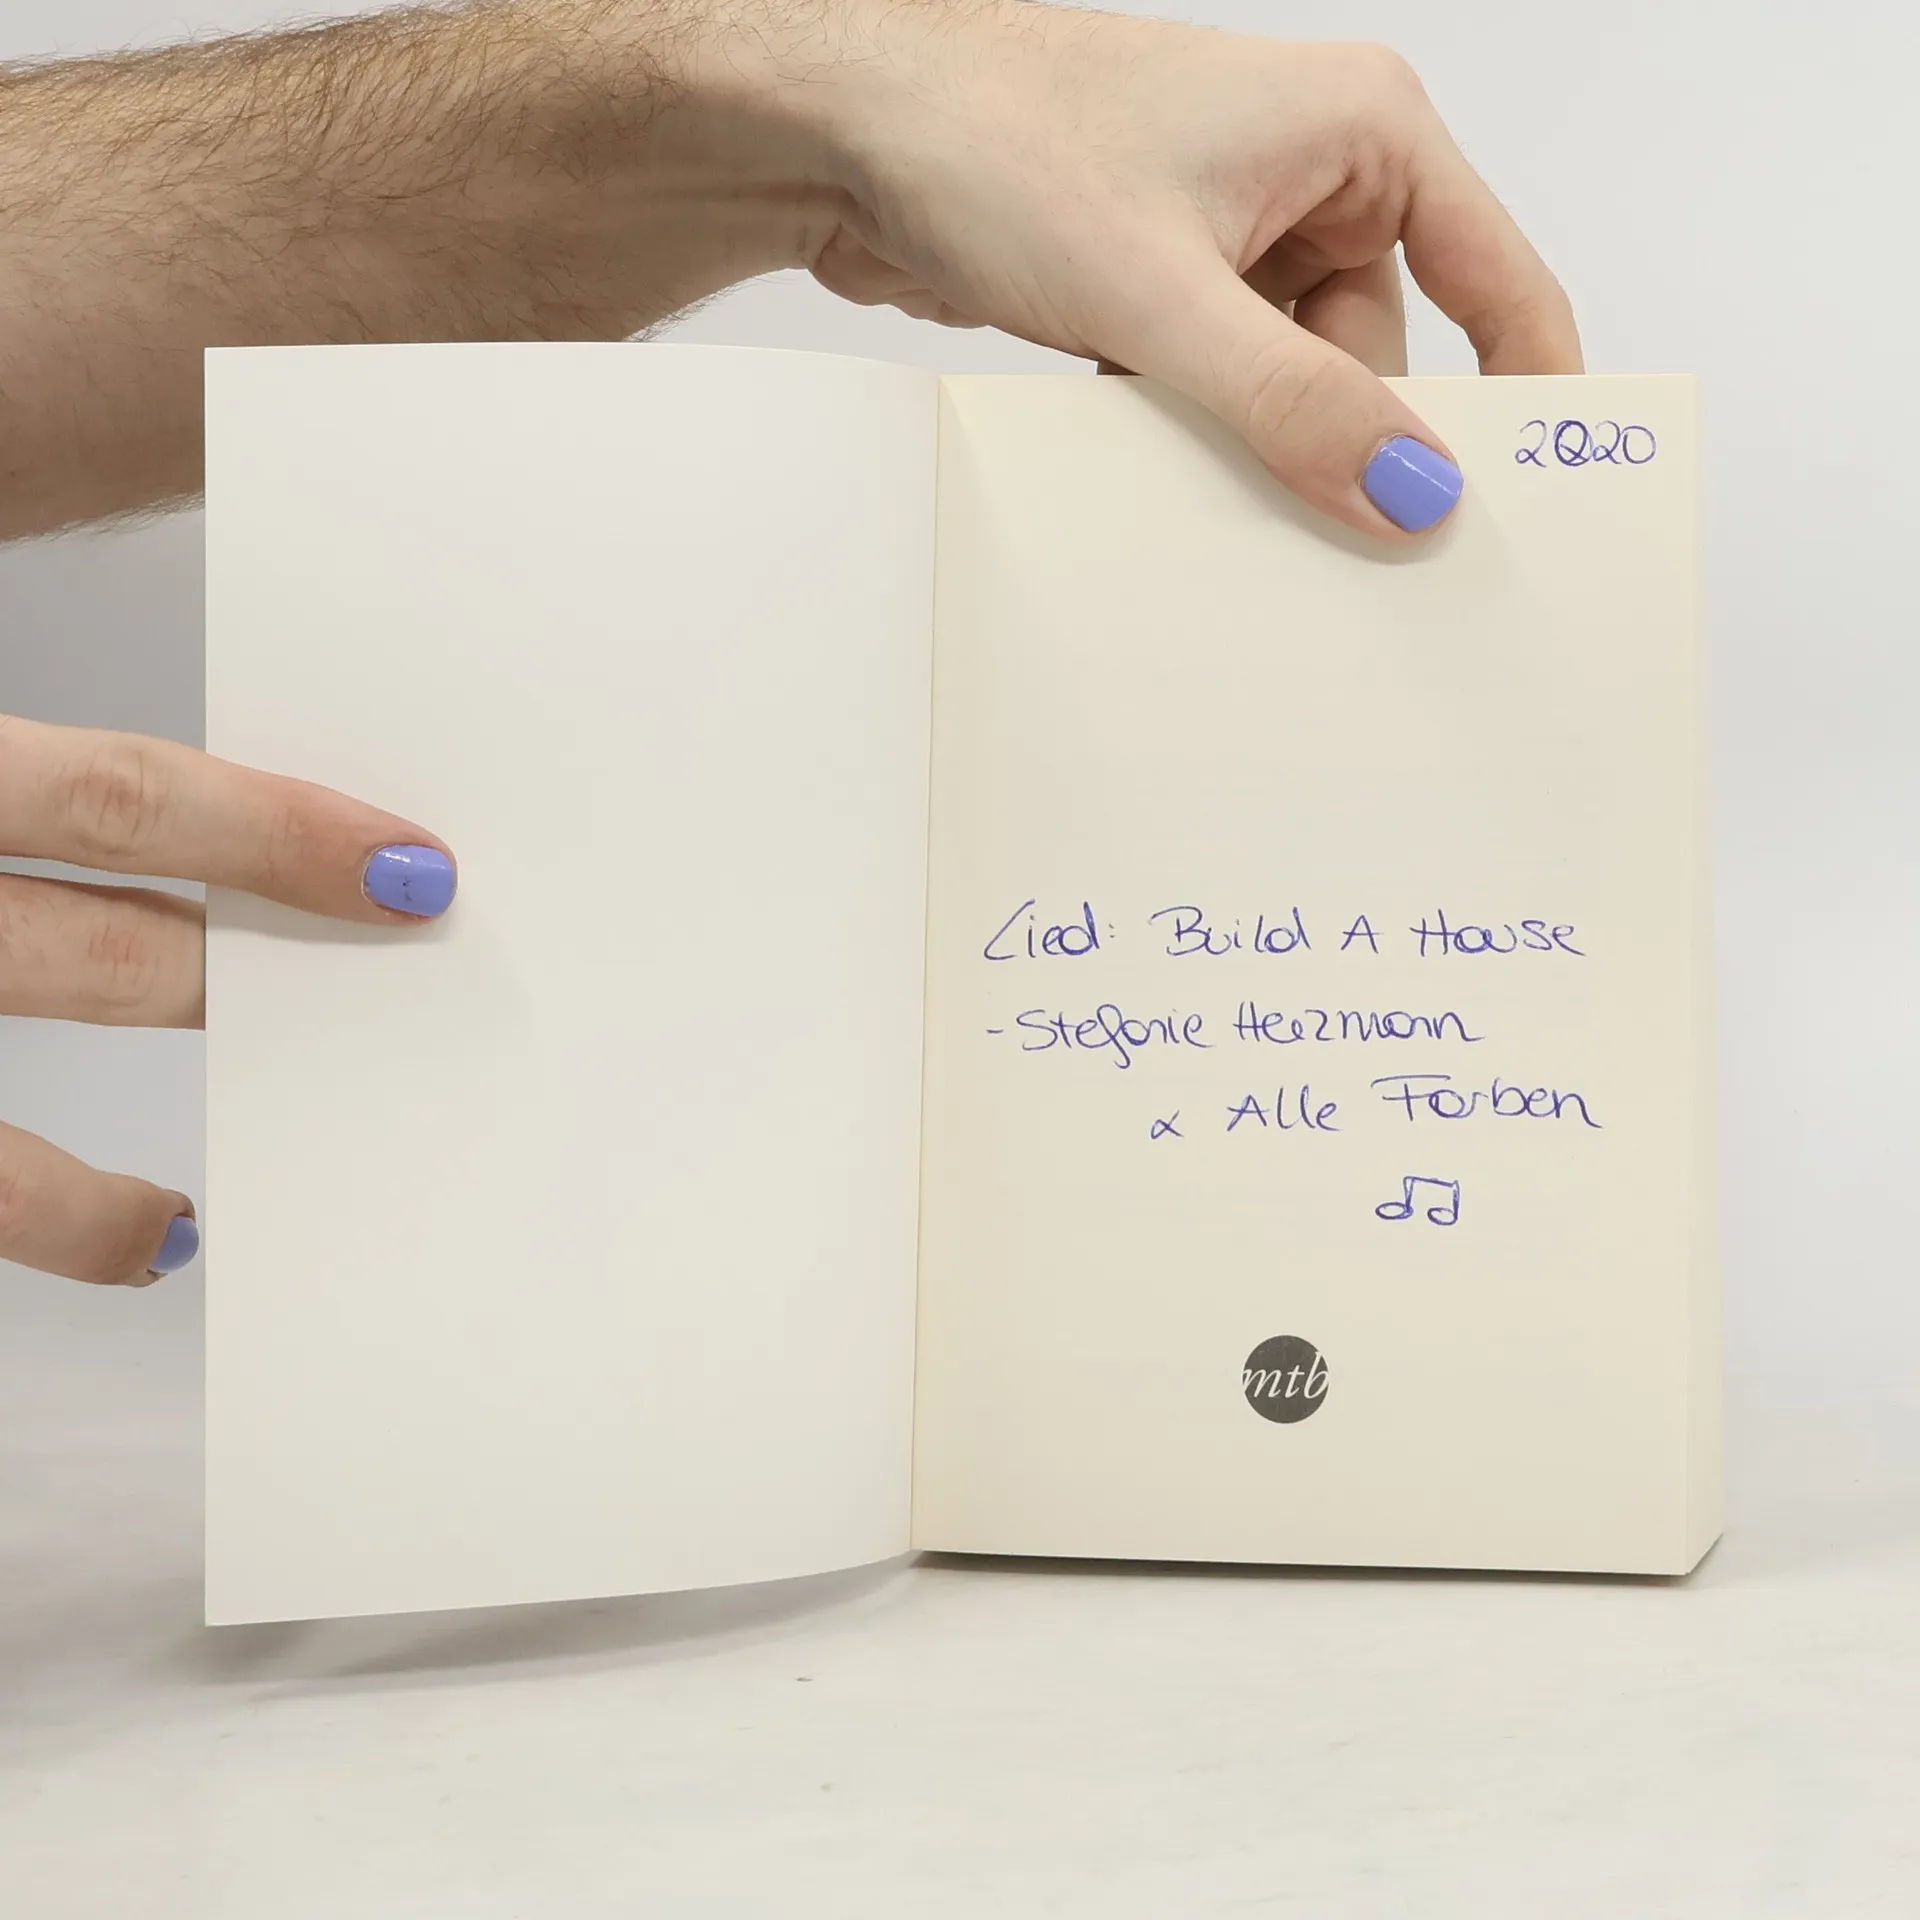 2020
Lied: Build A House
- Stefanie Heizmann
& Alle Farben
mtb